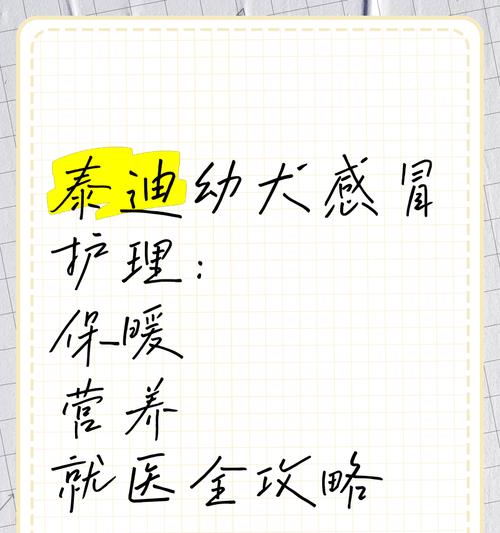 泰迪幼犬感冒
护理：
保暖
营养
就医全攻略